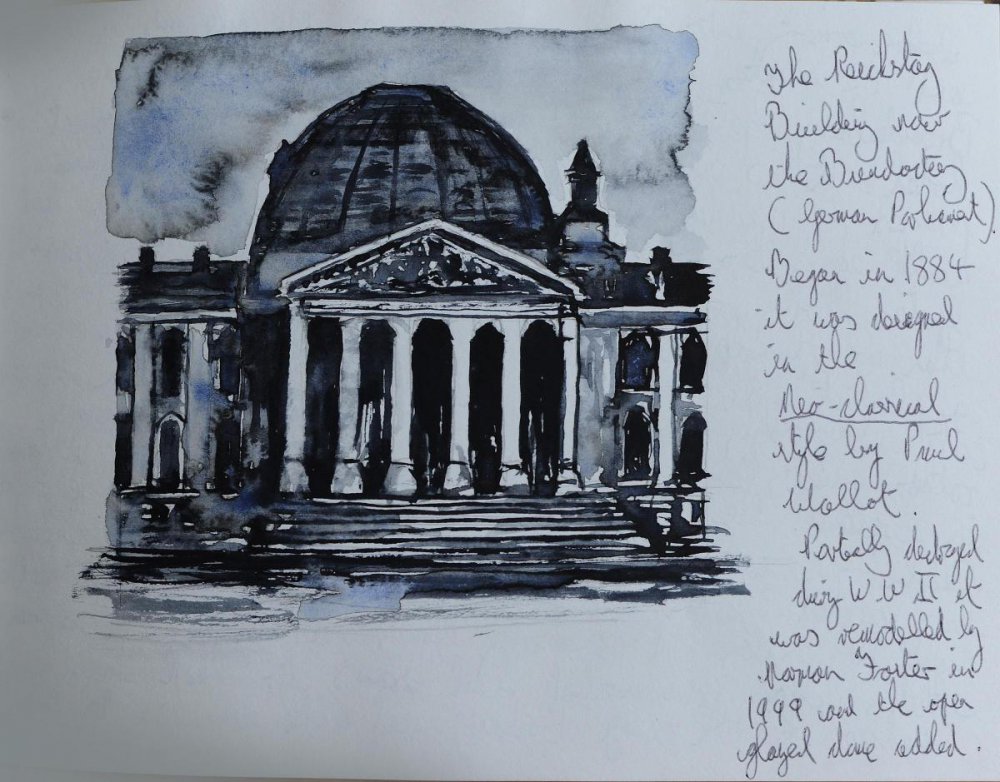 The Reichstag
Building now
the Bundestag
(German Parliament).
Began in 1884
it was designed
in the
Neo-classical
style by Paul
Wallot.
Partially destroyed
during WW II it
was remodelled by
Norman Foster in
1999 and the open
glazed dome added.